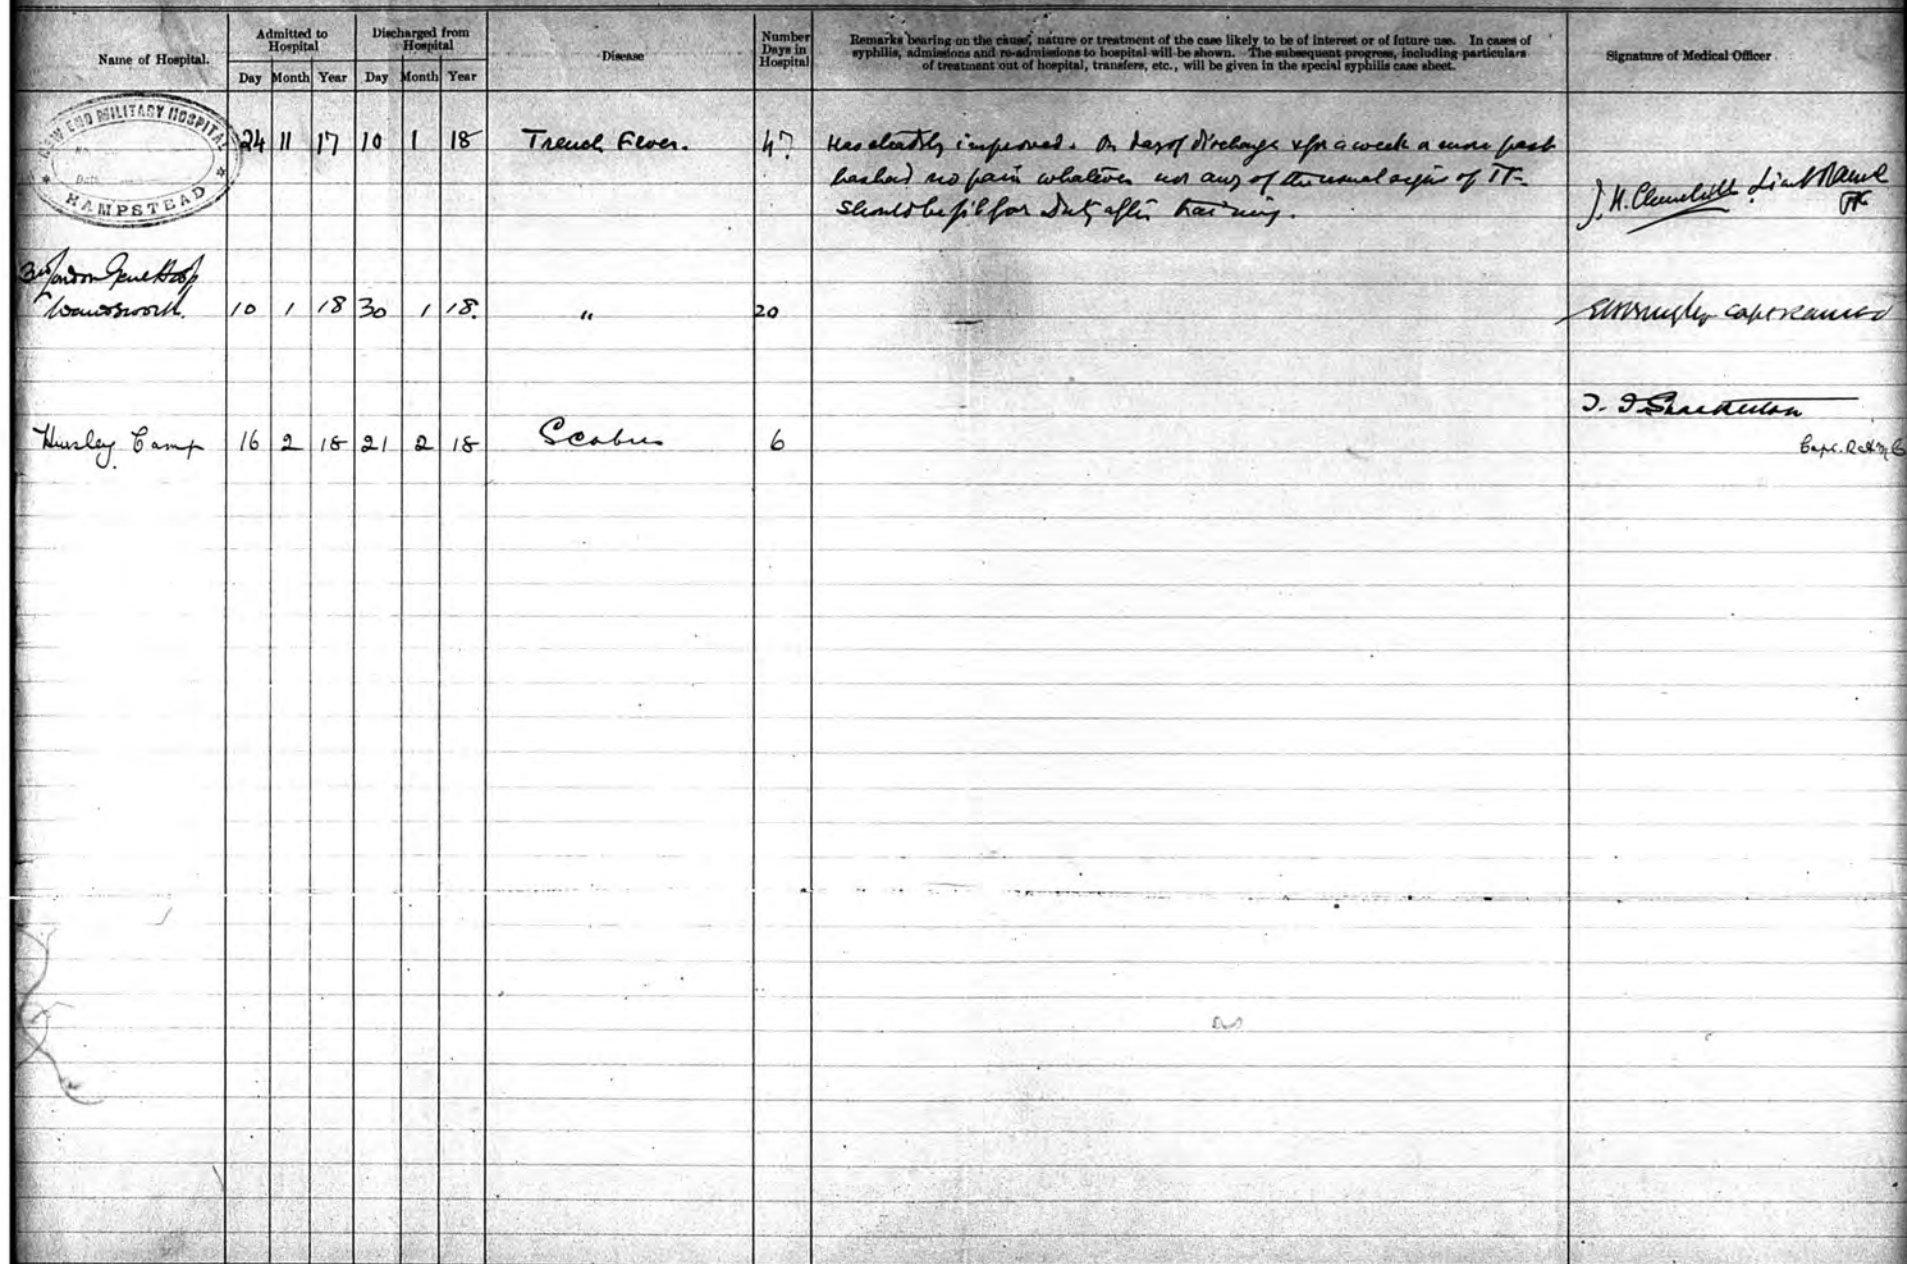 Name of Hospital.
Admitted to Hospital
Discharged from Hospital
Disease
Number Days in Hospital
Remarks bearing on the cause, nature or treatment of the case likely to be of interest or of future use. In cases of
syphilis, admissions and re-admissions to hospital will be shown. The subsequent progress, including particulars
of treatment out of hospital, transfers, etc., will be given in the special syphilis case sheet.
Signature of Medical Officer
Day Month Year Day Month Year
NEW END MILITARY HOSPITAL
Date
HAMPSTEAD
24 11 17 10 1 18 Trench Fever. 47 Has steadily improved. On day of discharge & for a week or more past
has had no pain whatever nor any of the usual signs of TF.
Should be fit for Duty after training.
J. H. Churchill Lieut RAMC
3rd London Genl Hosp
Wandsworth. 10 1 18 30 1 18. " 20 —
Capt RAMC
Hursley Camp 16 2 18 21 2 18 Scabies 6
Capt. RAMC